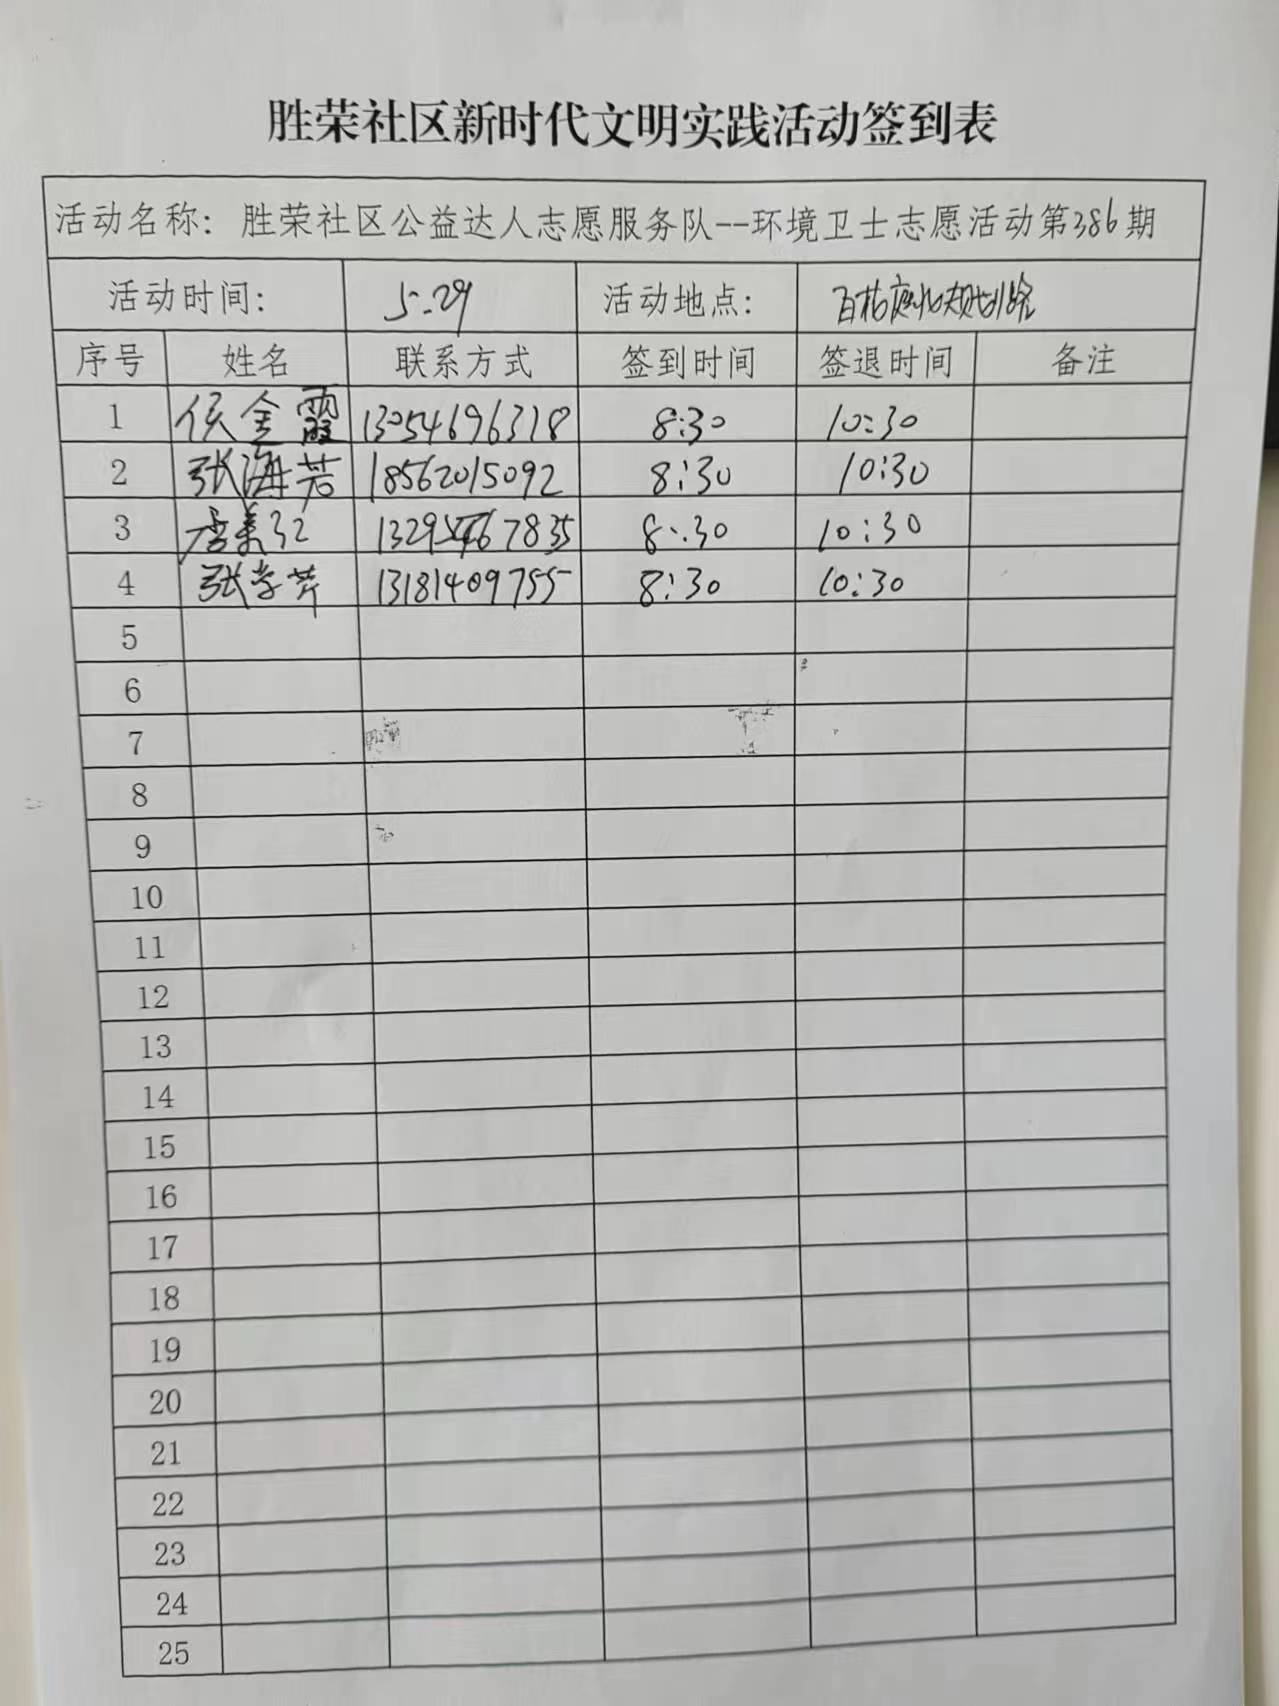 胜荣社区新时代文明实践活动签到表
活动名称：胜荣社区公益达人志愿服务队--环境卫士志愿活动第386期
活动时间： 5.29 活动地点：
序号 姓名 联系方式 签到时间 签退时间 备注
1 侯金霞 13054696318 8:30 10:30
2 张海芳 18562015092 8:30 10:30
3 李美红 8:30 10:30
4 张学芹 13181409755 8:30 10:30
5
6
7
8
9
10
11
12
13
14
15
16
17
18
19
20
21
22
23
24
25